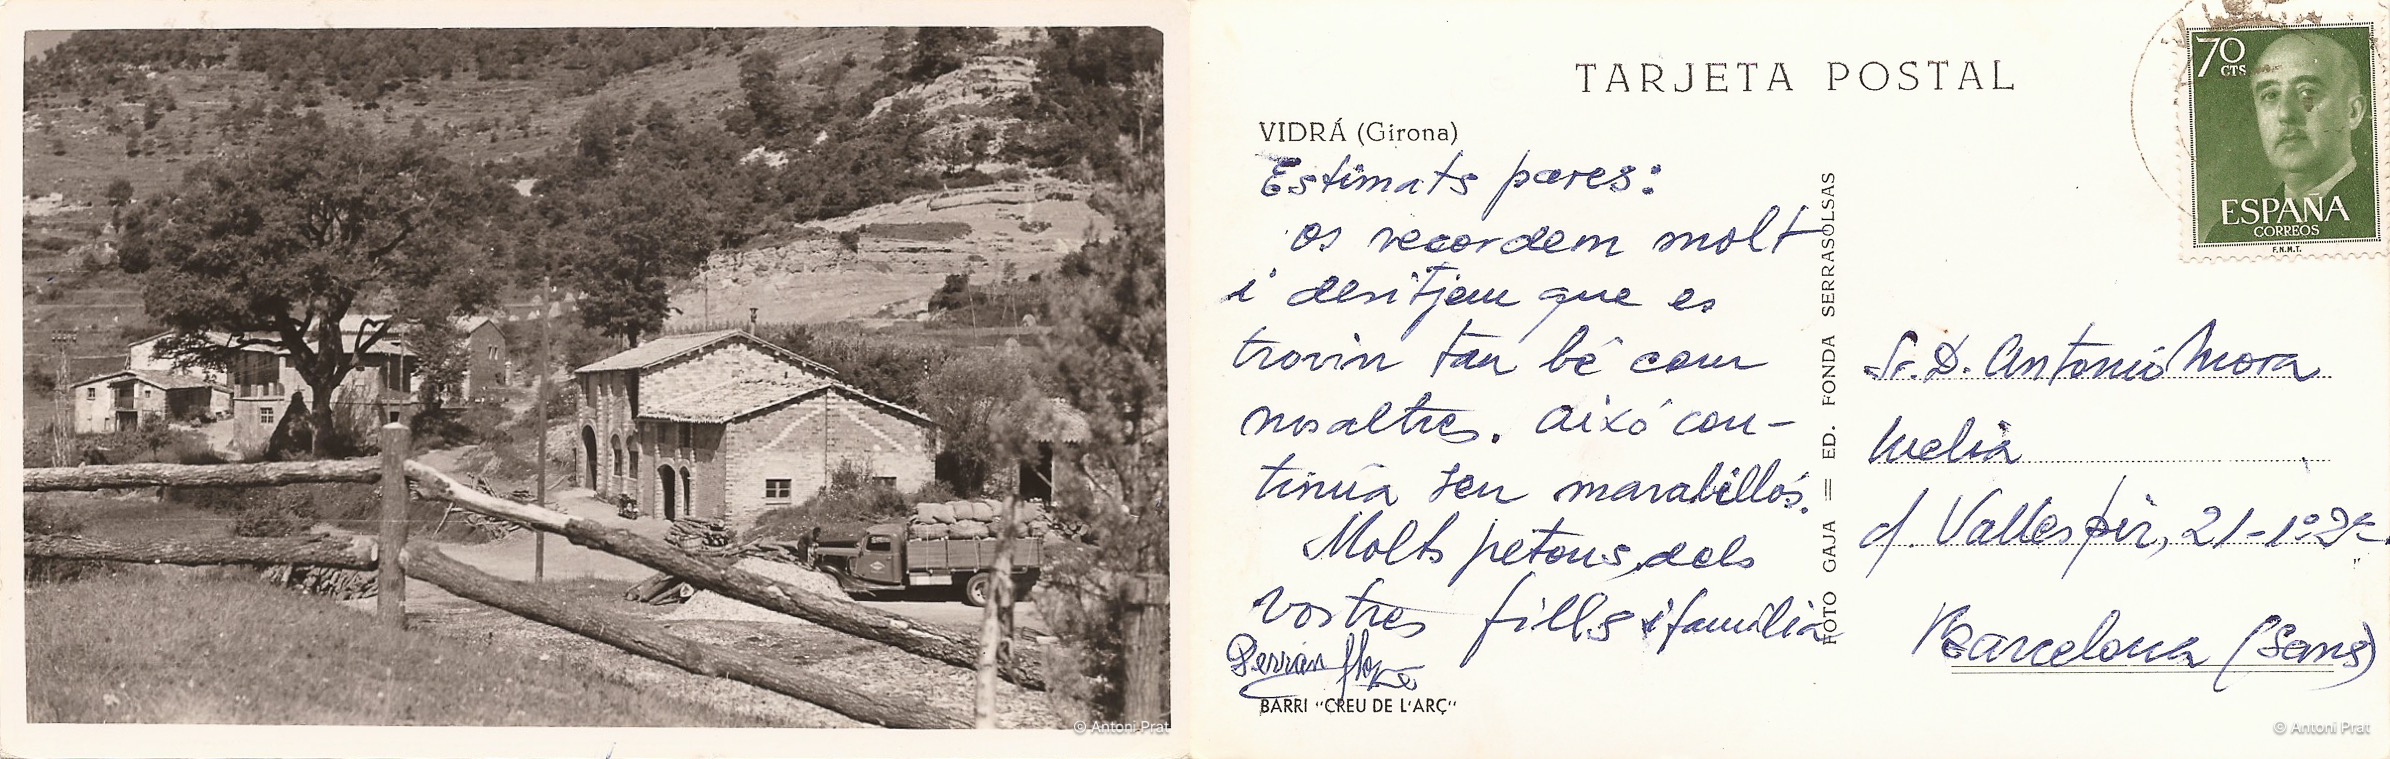 TARJETA POSTAL
VIDRÁ (Girona)
Estimats pares:
os recordem molt
i desitjem que es
trovin tan bé com
nosaltres. Aixó con-
tinúa sen marabillós.
Molts petons, dels
vostres fills i familia
Ferran
BARRI "CREU DE L'ARÇ"
FOTO GAJA = ED. FONDA SERRASOLSAS
70
CTS
ESPAÑA
CORREOS
F.N.M.T.
Sr. D. Antonio Mora
Meliá
c/. Vallespir, 21-1º2ª
Barcelona (Sans)
© Antoni Prat
© Antoni Prat